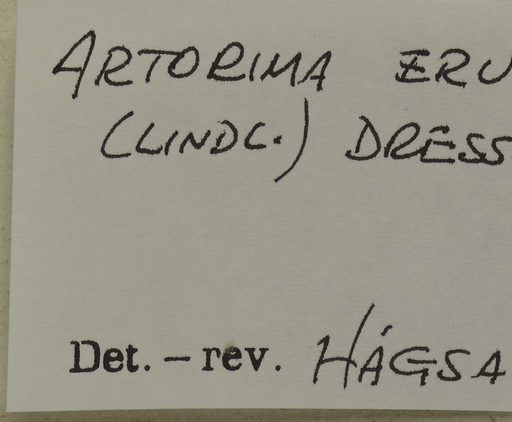 ARTORIMA ERU
(LINDL.) DRESS
Det. – rev. HÁGSA